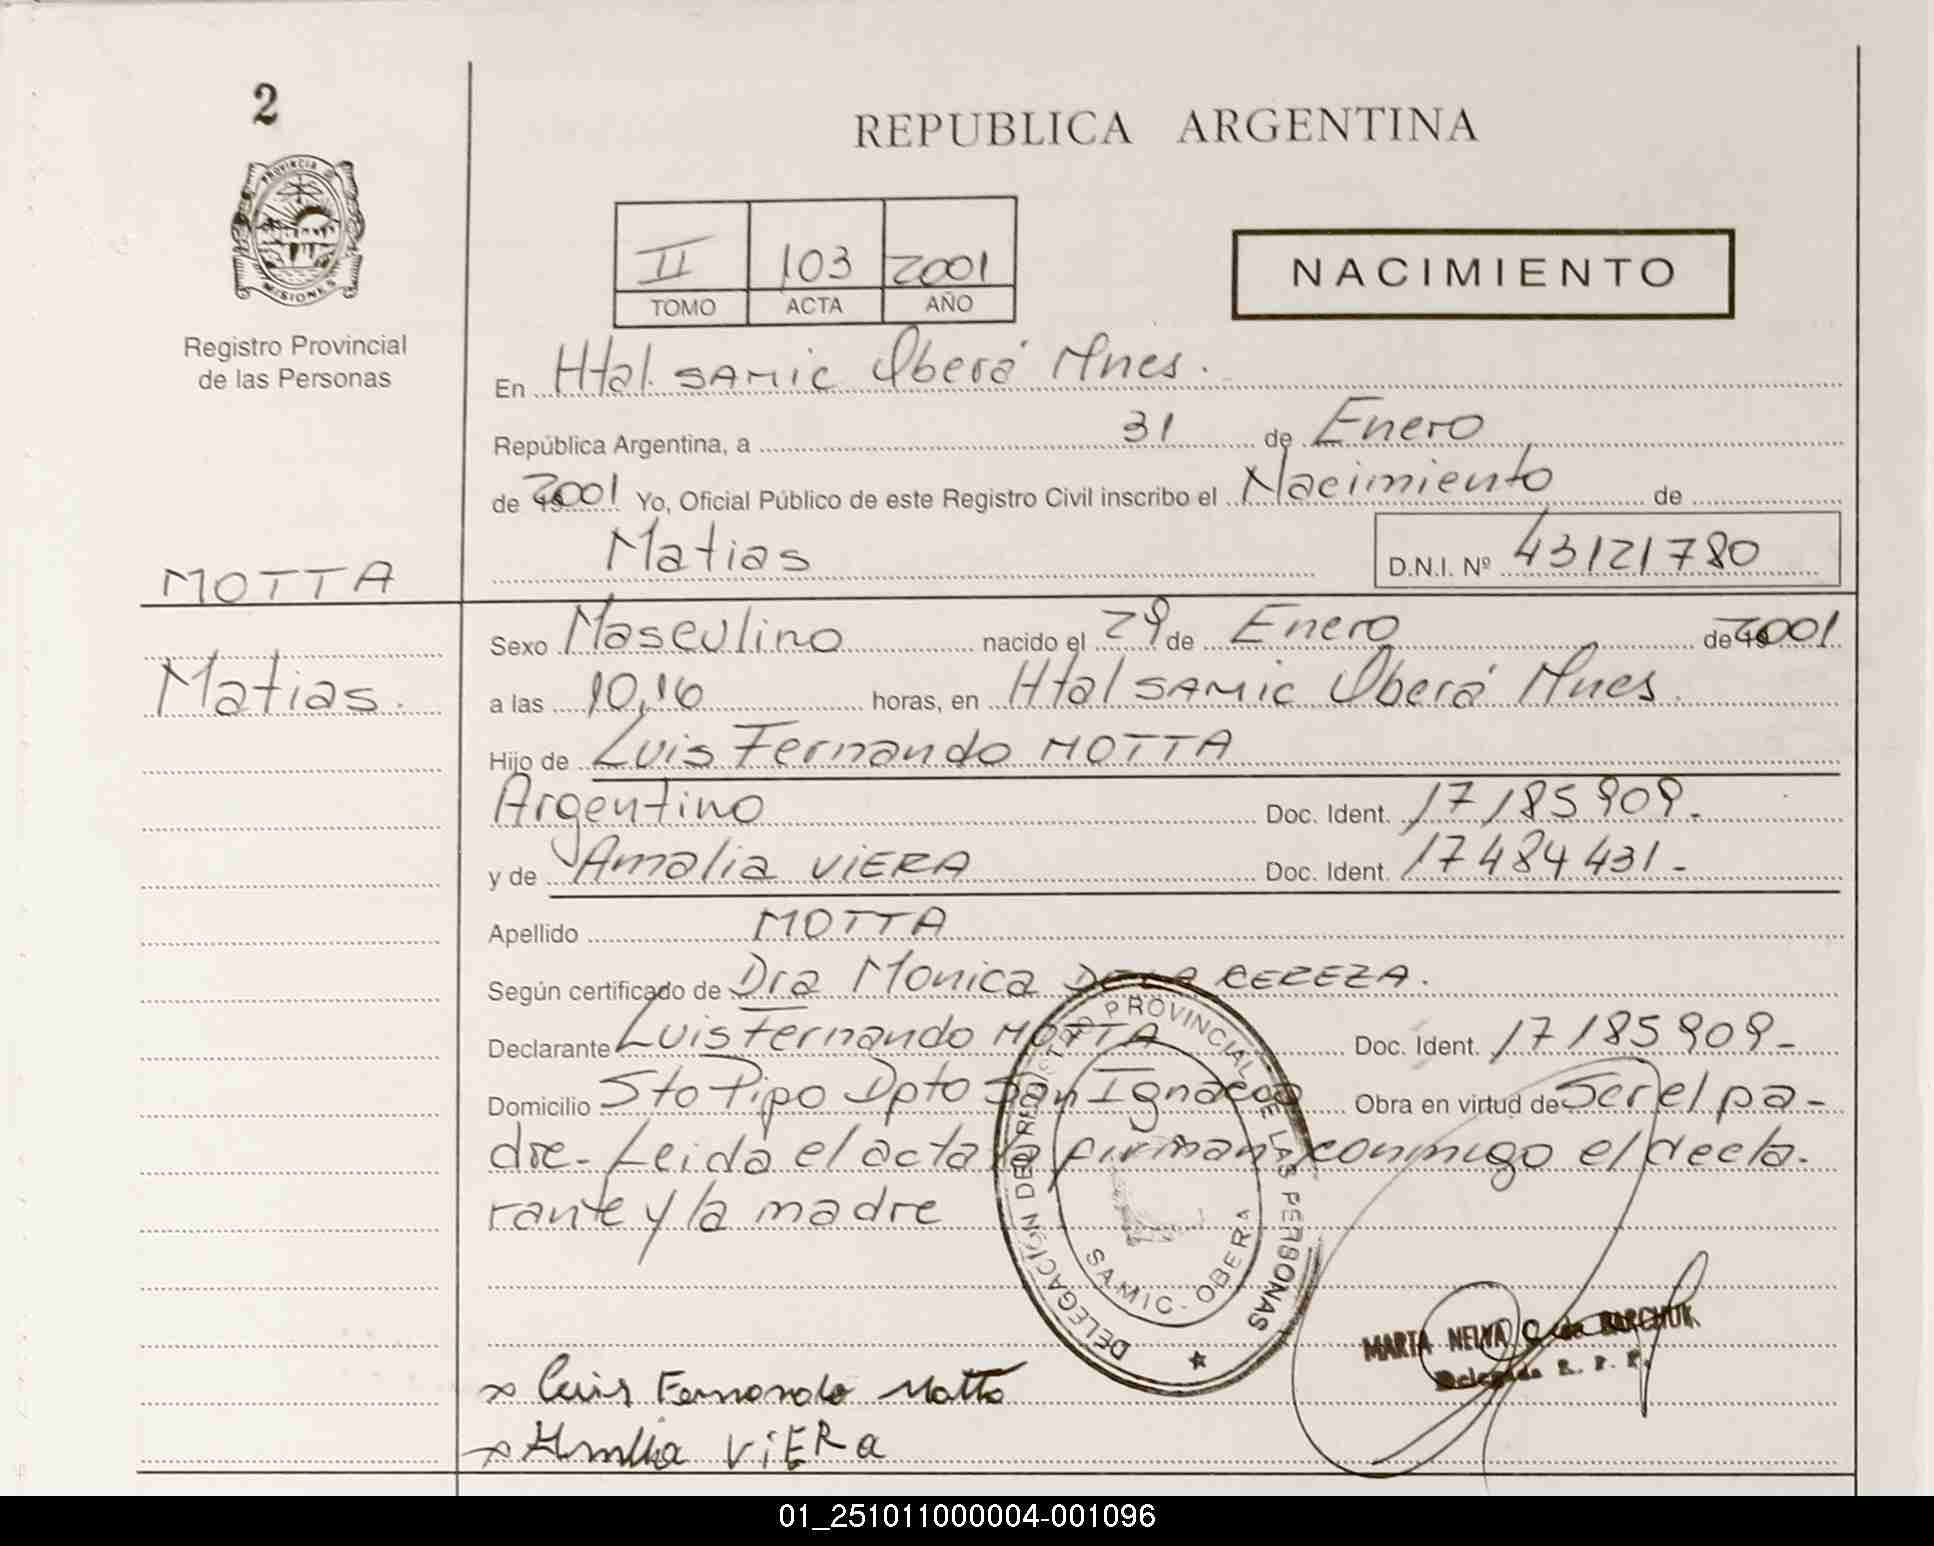 2
PROVINCIA DE
MISIONES
Registro Provincial
de las Personas
REPUBLICA ARGENTINA
II 103 2001
TOMO ACTA AÑO
NACIMIENTO
En Htal. SAMIC Oberá Mnes.
República Argentina, a 31 de Enero
de 2001 Yo, Oficial Público de este Registro Civil inscribo el Nacimiento de
Matias D.N.I. Nº 43121780
MOTTA
Matias.
Sexo Masculino nacido el 29 de Enero de 2001
a las 10,16 horas, en Htal SAMIC Oberá Mnes.
Hijo de Luis Fernando MOTTA
Argentino Doc. Ident. 17185909.
y de Amalia VIERA Doc. Ident. 17484431-
Apellido MOTTA
Según certificado de Dra Monica DE LA CEREZA.
Declarante Luis Fernando MOTTA Doc. Ident. 17185909-
Domicilio Sto Pipo Dpto San Ignacio Obra en virtud de Ser el pa-
dre- Leida el acta la firman conmigo el decla-
rante y la madre
DELEGACIÓN DE REGISTRO PROVINCIAL DE LAS PERSONAS
SAMIC - OBERA
MARTA NELVA de BARCHUK
Delegada R. P. P.
x Luis Fernando Motta
x Amalia ViERa
01_251011000004-001096